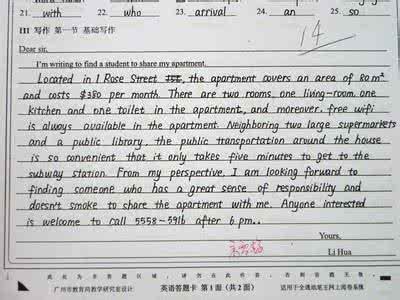 21. with 22. who 23. arrival 24. an 25. so
III 写作 第一节 基础写作
14
Dear sir,
I'm writing to find a student to share my apartment.
Located in 1 Rose Street, the apartment covers an area of 80m²
and costs $380 per month. There are two rooms, one living-room, one
kitchen and one toilet in the apartment, and moreover, free wifi
is always available in the apartment. Neighboring two large supermarkets
and a public library, the public transportation around the house
is so convenient that it only takes five minutes to get to the
subway station. From my perspective, I am looking forward to
finding someone who has a great sense of responsibility and
doesn't smoke to share the apartment with me. Anyone interested
is welcome to call 5558-5916 after 6 pm..
Yours,
Li Hua
此 处 为 非 答 题 区 域 , 请 勿 在 此 作 答 , 否 则 答 题 无 效 。
广州市教育局教学研究室设计 英语答题卡 第 1 面 (共 2 面) 适用于全通纸笔王网上阅卷系统